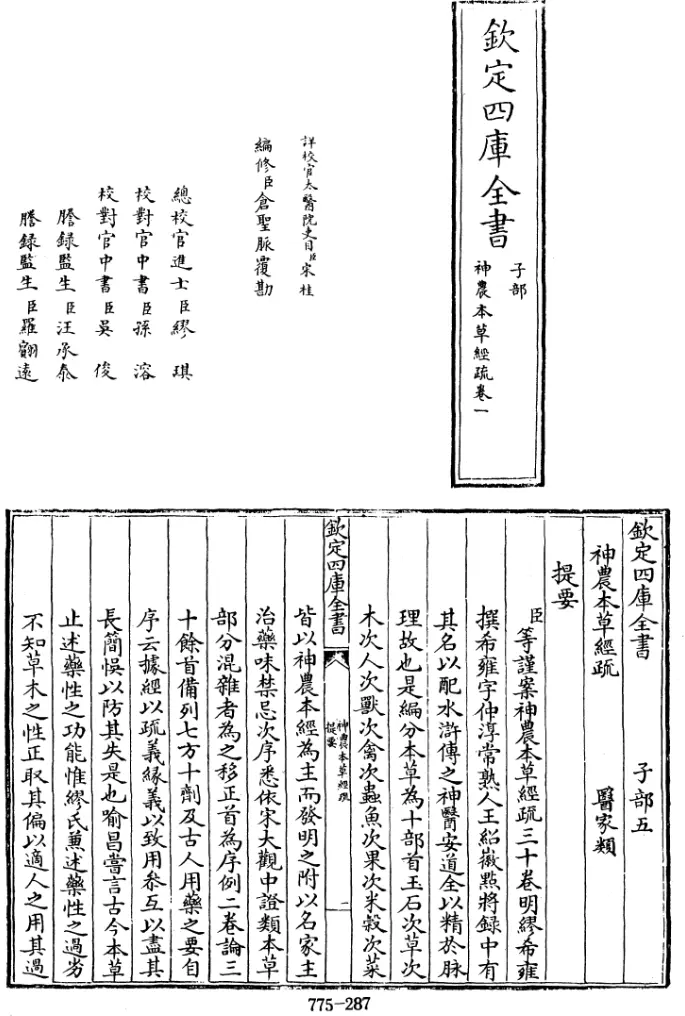 欽定四庫全書
子部
神農本草經疏卷一
詳校官太醫院吏目臣宋桂
編修臣倉聖脈覆勘
總校官進士臣繆琪
校對官中書臣孫溶
校對官中書臣吳俊
謄録監生臣汪承泰
謄録監生臣羅翽遠
欽定四庫全書 子部五
神農本草經疏 醫家類
提要
臣等謹案神農本草經疏三十卷明繆希雍
撰希雍字仲淳常熟人王紹徽點將録中有
其名以配水滸傳之神醫安道全以精於脉
理故也是編分本草為十部首玉石次草次
木次人次獸次禽次蟲魚次果次米榖次菜
欽定四庫全書
神農本草經疏
提要
一
皆以神農本經為主而發明之附以名家主
治藥味禁忌次序悉依宋大觀中證類本草
部分混雜者為之移正首為序例二卷論三
十餘首備列七方十劑及古人用藥之要自
序云據經以疏義緣義以致用參互以盡其
長簡悮以防其失是也喻昌嘗言古今本草
止述藥性之功能惟繆氏兼述藥性之過劣
不知草木之性正取其偏以適人之用其過
775-287